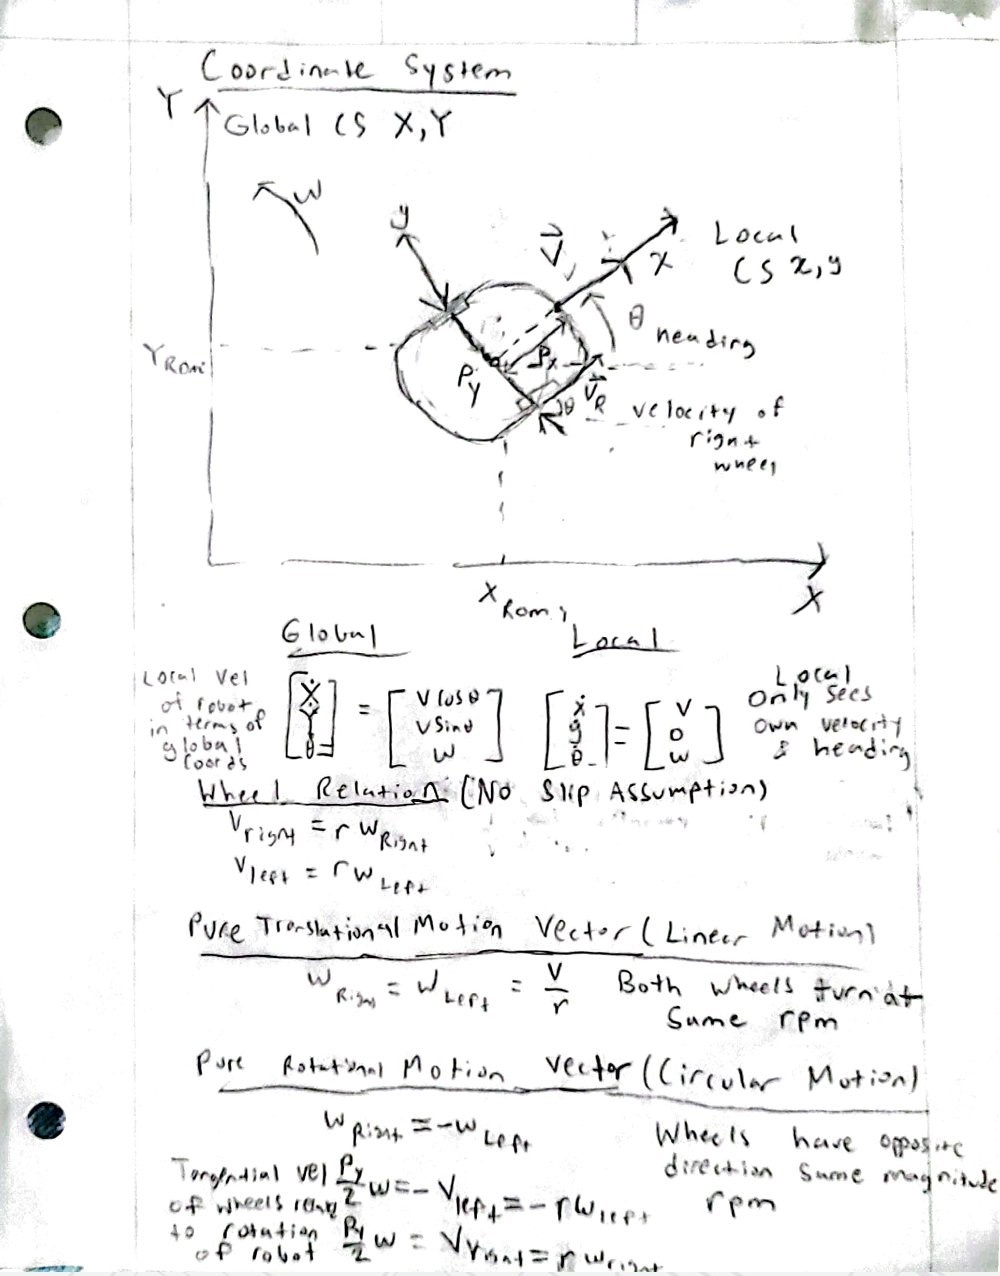 Coordinate System
Y
Global CS X,Y
w
y
V
x
Local
CS x,y
θ
heading
Y Romi
Py
Px
θ
V R
velocity of
right
wheel
X Romi
X
Global
Local
Local Vel
of robot
in terms of
global
Coords
[Ẋ Ẏ θ̇] = [V cosθ V sinθ w]
[ẋ ẏ θ̇] = [V 0 w]
Local
Only Sees
own velocity
& heading
Wheel Relation (No Slip Assumption)
V right = r w Right
V left = r w Left
Pure Translational Motion Vector (Linear Motion)
w Right = w Left = V/r Both wheels turn at
Same rpm
Pure Rotational Motion Vector (Circular Motion)
w Right = -w Left
Wheels have opposite
direction same magnitude
rpm
Tangential vel
of wheels
to rotation
of robot
Py/2 w = -V left = -r w left
Py/2 w = V right = r w right